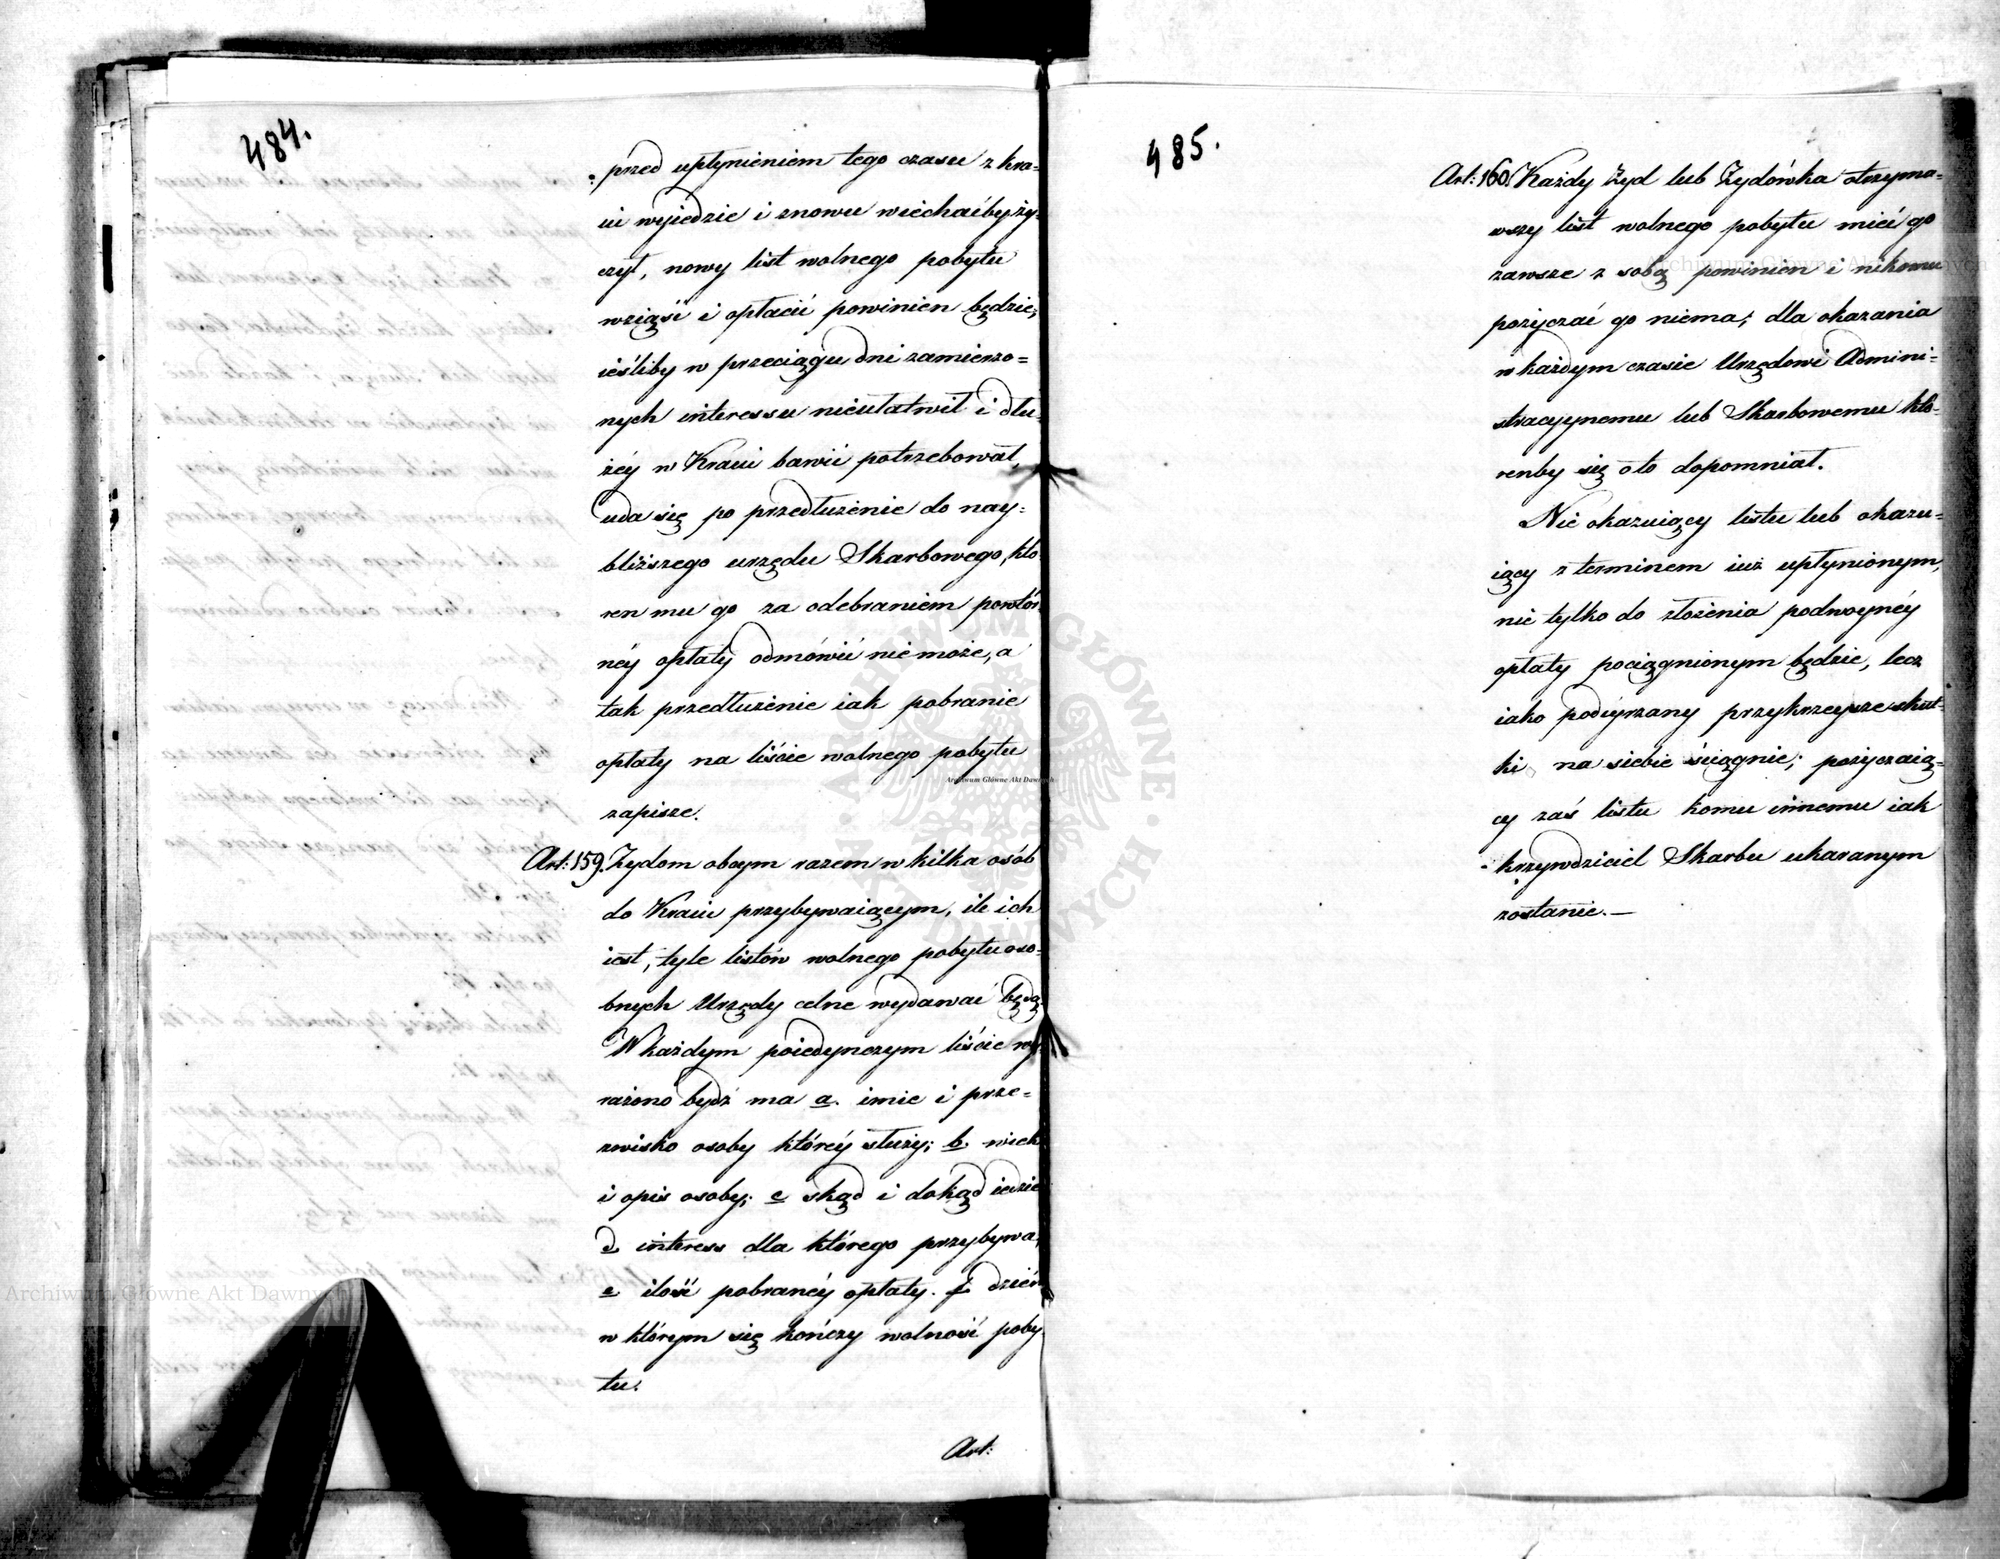 484.
przed upłynieniem tego czasu z kra-
iu wyiedzie i znowu wiechać by ży-
czył, nowy list wolnego pobytu
wziąść i opłacić powinien będzie;
ieśliby w przeciągu dni zamierzo=
nych interessu nieułatwił i dłu-
żéy w Kraiu bawić potrzebował,
uda się po przedłużenie do nay=
bliższego urzędu Skarbowego, któ
ren mu go za odebraniem powtór
néy opłaty odmówić nie może, a
tak przedłużenie iak pobranie
opłaty na liście wolnego pobytu
zapisze.
Art: 159. Żydom obcym razem w kilka osób
do Kraiu przybywaiącym, ile ich
iest, tyle listów wolnego pobytu oso-
bnych Urzędy celne wydawać będą.
W każdym poiedynczym liście wy-
rażono bydź ma a. imie i prze=
zwisko osoby któréy służy; b. wiek
i opis osoby; c skąd i dokąd iedzie
d interess dla którego przybywa,
e ilość pobranéy opłaty. f dzień
w którym się kończy wolność poby
tu.
Art:
485.
Art: 160. Każdy Żyd lub Żydówka otrzyma=
wszy list wolnego pobytu mieć go
zawsze z sobą powinien i nikomu
pożyczać go niema; dla okazania
w każdym czasie Urzędowi Admini=
stracyynemu lub Skarbowemu któ-
renby się oto dopomniał.
Nie okazuiący listu lub okazu=
iący z terminem iuż upłynionym,
nie tylko do złożenia podwoynéy
opłaty pociągnionym będzie, lecz
iako podéyrzany przykrzeysze skut-
ki na siebie ściągnie; pożyczaią=
cy zaś listu komu innemu iak
krzywdziciel Skarbu ukaranym
zostanie.—
Archiwum Główne Akt Dawnych
Archiwum Główne Akt Dawnych
Archiwum Główne Akt Dawnych
ARCHIWUM GŁÓWNE · AKT DAWNYCH ·